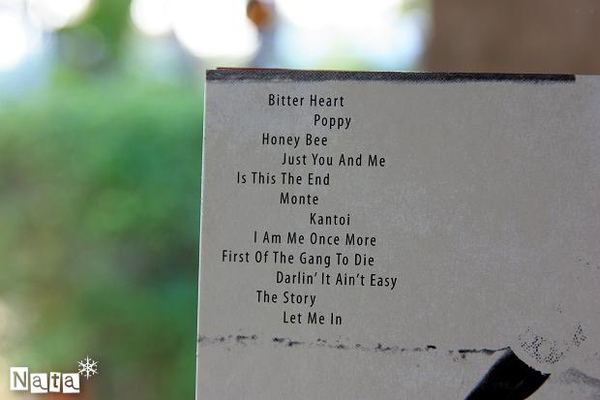 Bitter Heart
Poppy
Honey Bee
Just You And Me
Is This The End
Monte
Kantoi
I Am Me Once More
First Of The Gang To Die
Darlin' It Ain't Easy
The Story
Let Me In
Nata